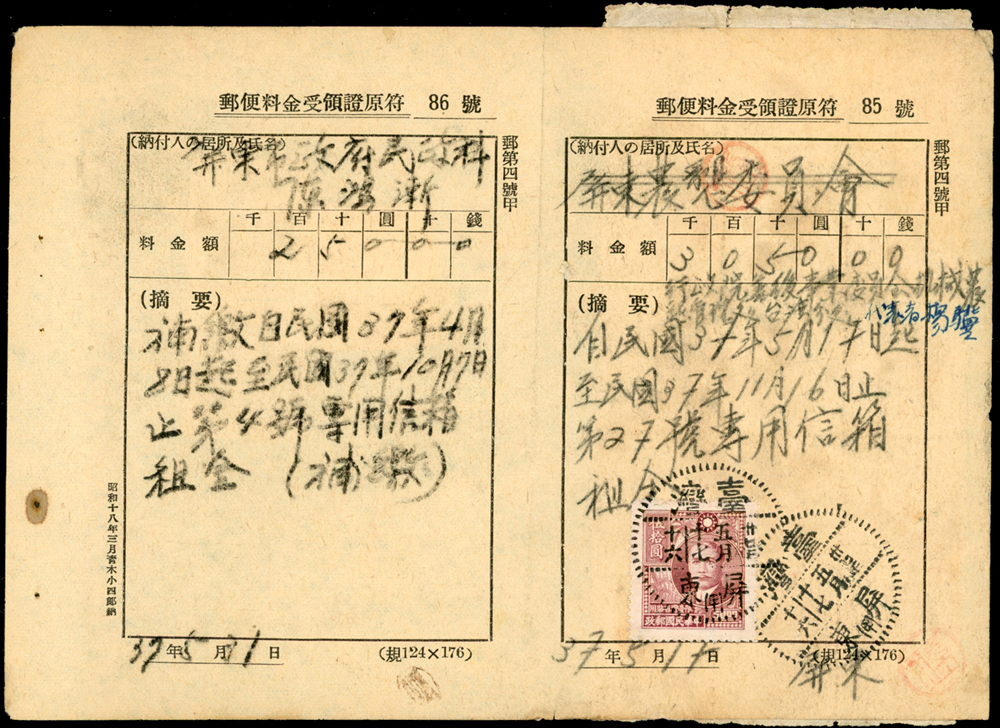 郵便料金受領證原符 86 號
(納付人の居所及氏名)
屏東市政府民政科
陳鴻漸
千 百 十 圓 十 錢
料金額 2 5 0 0 0
(摘要)
補繳自民國37年4月
8日起至民國37年10月7日
止第4號專用信箱
租金(補繳)
37年5月31日
(規124×176)
郵第四號甲
昭和十八年三月青木小四郎納
郵便料金受領證原符 85 號
(納付人の居所及氏名)
屏東農 委員會
千 百 十 圓 十 錢
料金額 3 0 5 0 0 0
行政院善後事業委員會機械農
代表者楊
(摘要)
自民國37年5月17日起
至民國37年11月16日止
第27號專用信箱
租金
臺灣
五月
十七
十六
屏東
伍拾圓
中華民國郵政
臺灣
五月
十七
十六
屏東
37年5月17日
(規124×176)
屏東
郵第四號甲